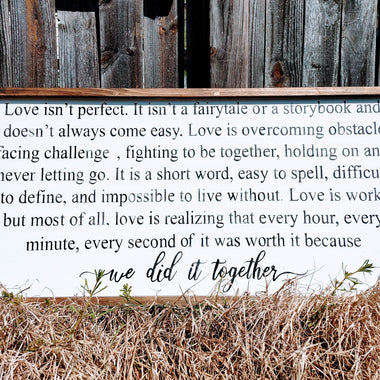 Love isn't perfect. It isn't a fairytale or a storybook and
doesn't always come easy. Love is overcoming obstacle
facing challenge , fighting to be together, holding on an
never letting go. It is a short word, easy to spell, difficu
to define, and impossible to live without. Love is work
but most of all, love is realizing that every hour, every
minute, every second of it was worth it because
we did it together